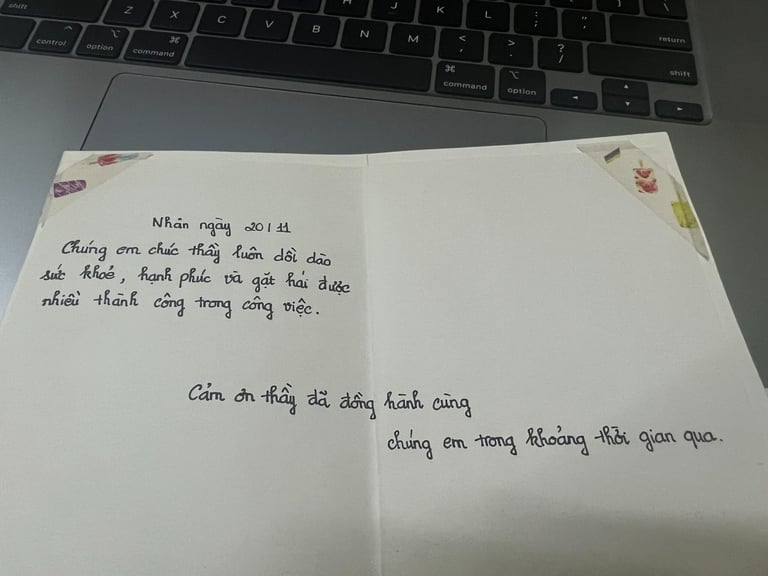 shift Z X C V B N M J K L : ; " ' return
control option command command option < , > . ? / shift
Nhân ngày 20/11
Chúng em chúc thầy luôn dồi dào
sức khoẻ, hạnh phúc và gặt hái được
nhiều thành công trong công việc.
Cảm ơn thầy đã đồng hành cùng
chúng em trong khoảng thời gian qua.